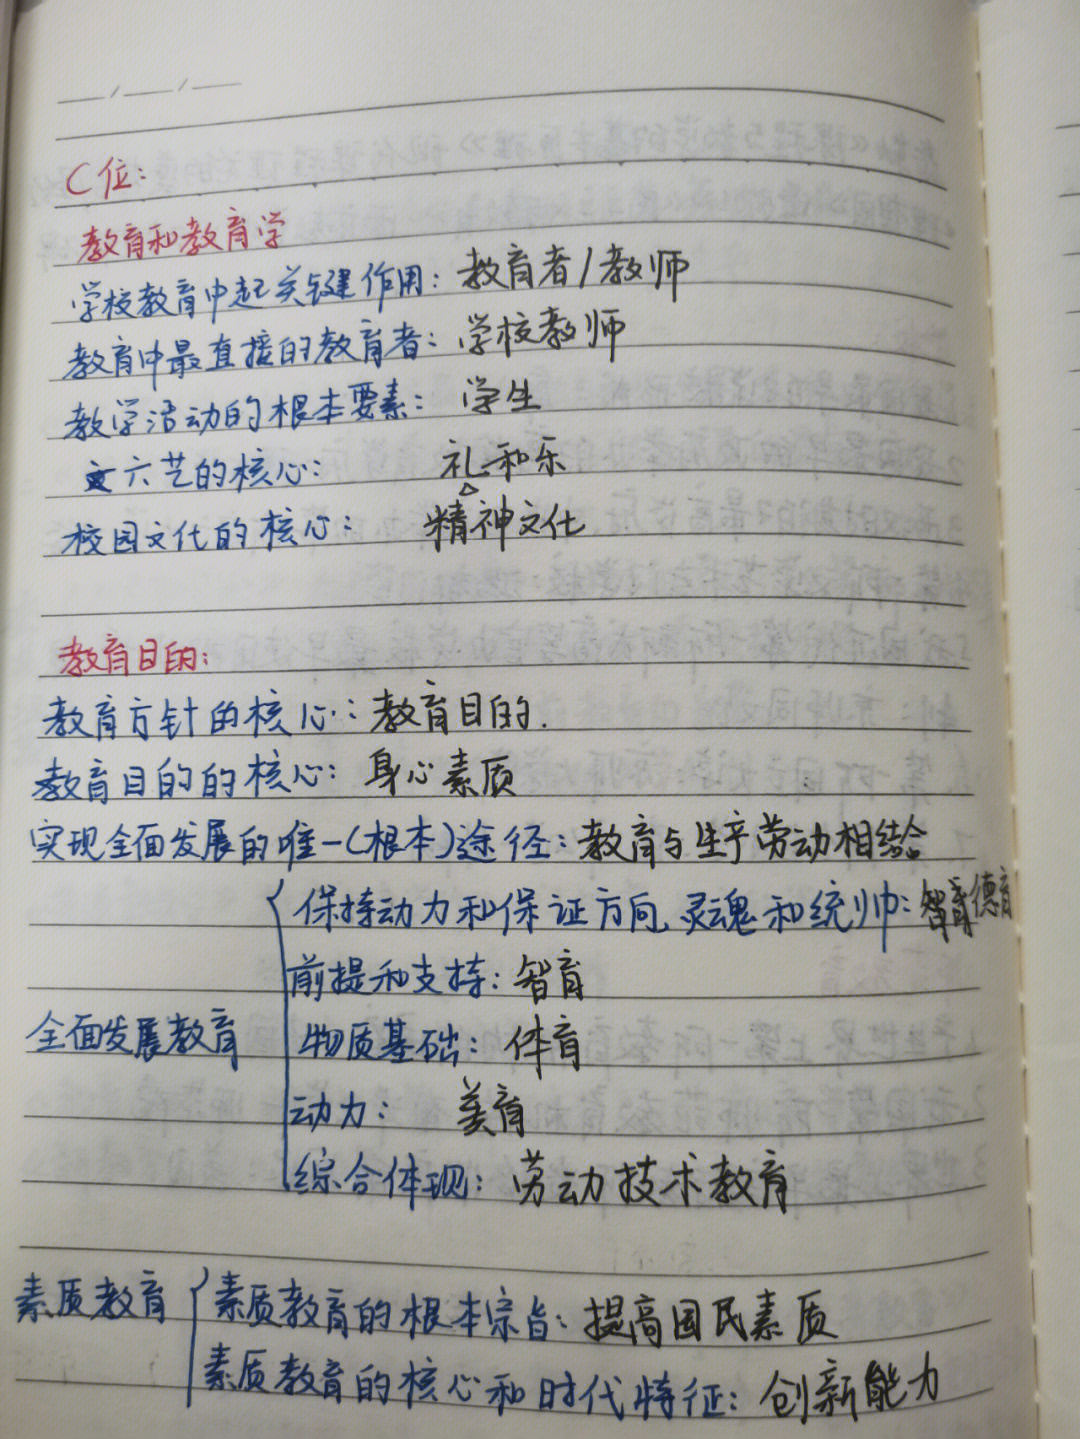 C位:
教育和教育学
学校教育中起关键作用: 教育者/教师
教育中最直接的教育者: 学校教师
教学活动的根本要素: 学生
六艺的核心: 礼和乐
校园文化的核心: 精神文化
教育目的:
教育方针的核心: 教育目的.
教育目的的核心: 身心素质
实现全面发展的唯一(根本)途径: 教育与生产劳动相结合
保持动力和保证方向、灵魂和统帅: 德育
前提和支持: 智育
全面发展教育 物质基础: 体育
动力: 美育
综合体现: 劳动技术教育
素质教育 素质教育的根本宗旨: 提高国民素质
素质教育的核心和时代特征: 创新能力